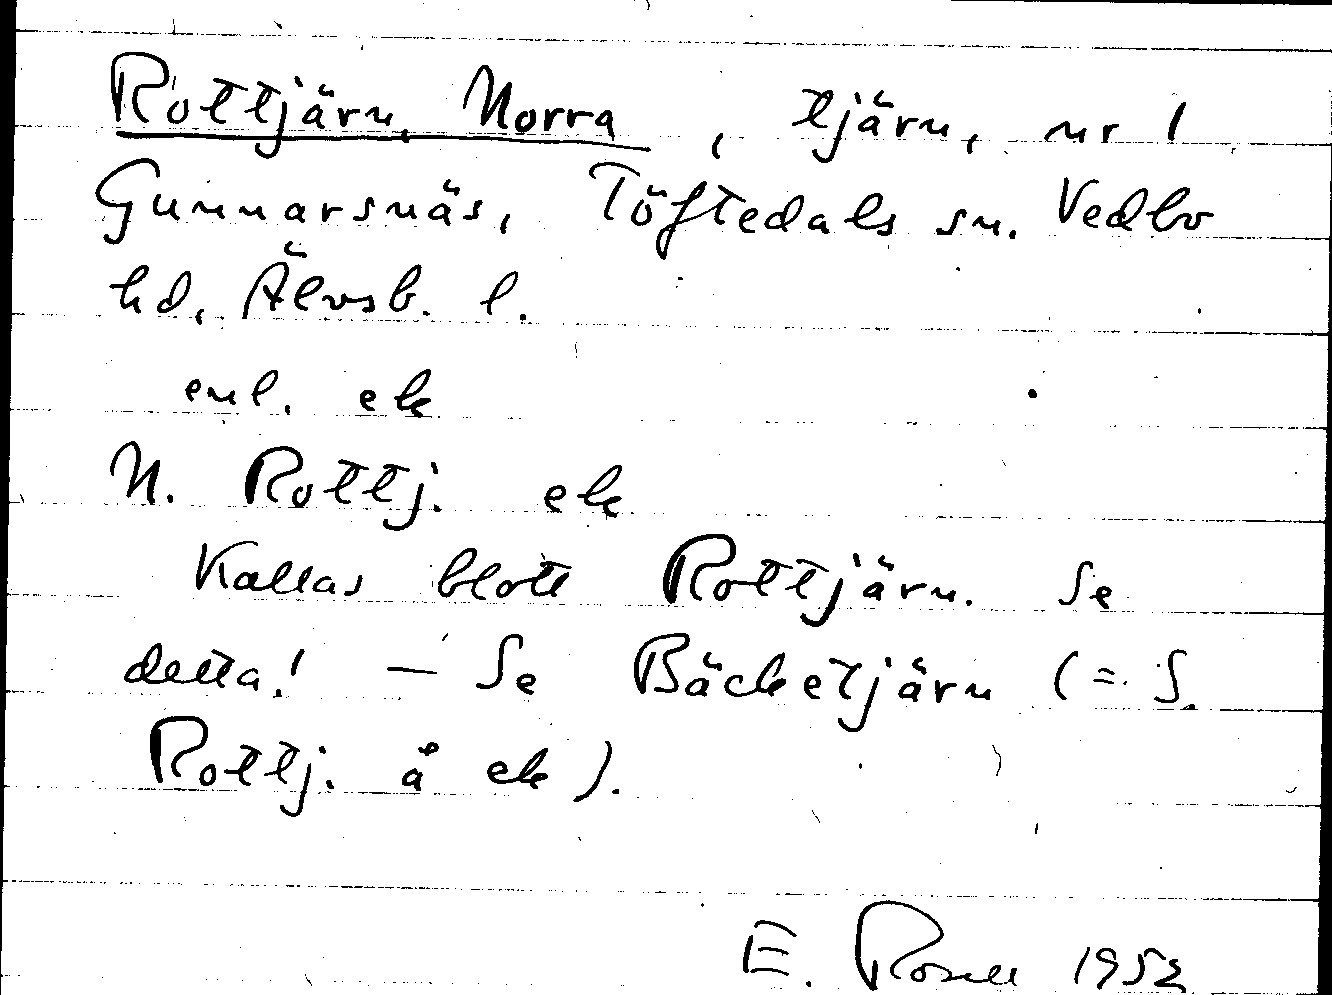 Rottjärn, Norra, tjärn, nr 1
Gunnarsnäs, Töftedals sn. Vedbo
hd, Älvsb. l.
enl. ek
N. Rottj. ek
Kallas blott Rottjärn. Se
detta! — Se Bäcketjärn (= S.
Rottj. å ek).
E. Rosell 1952